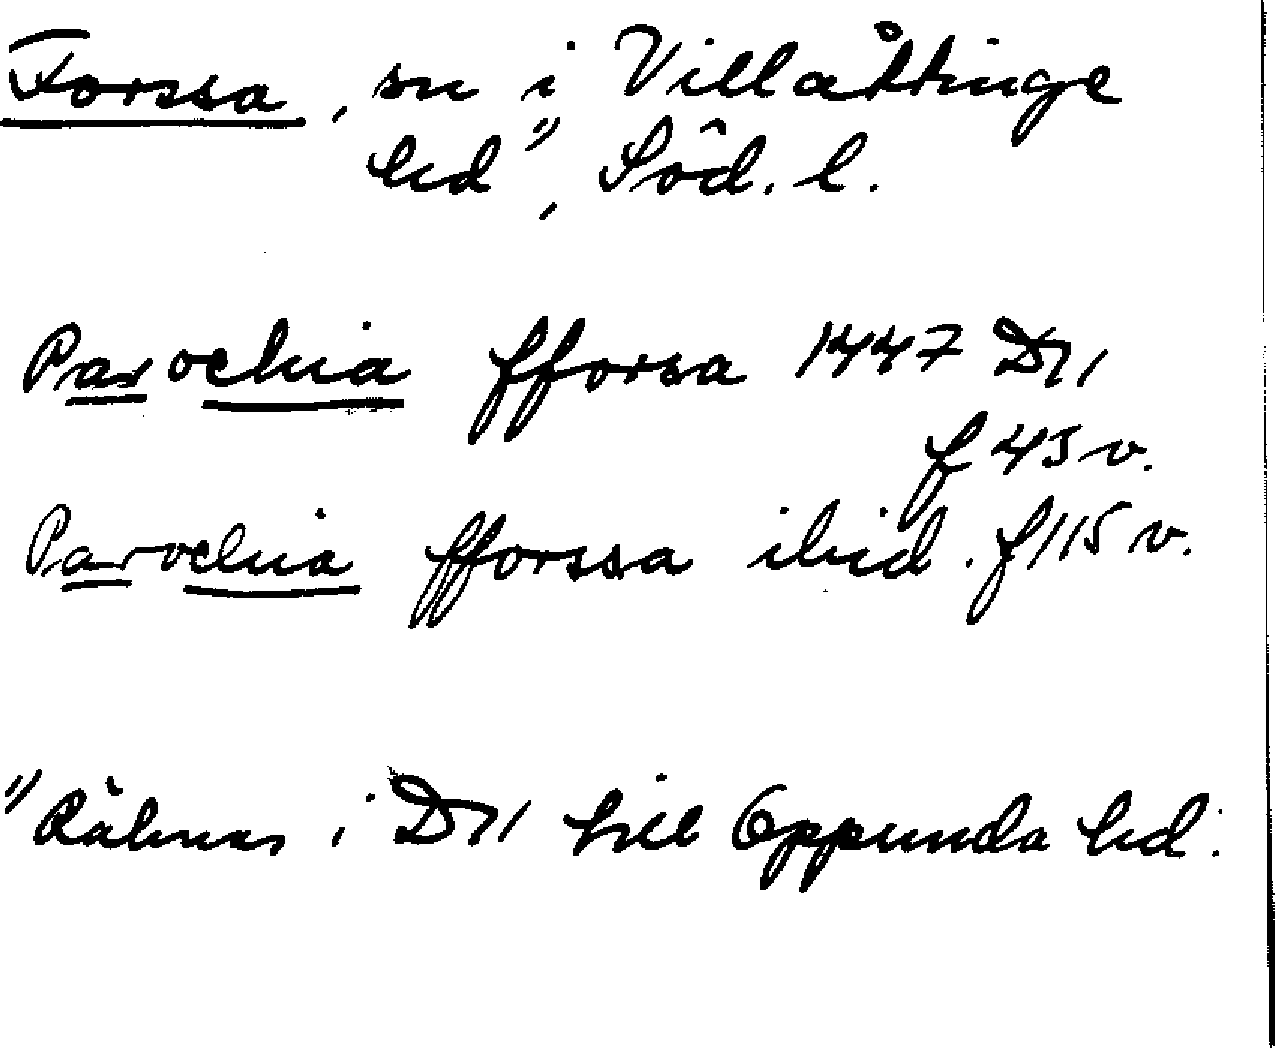 Forssa, sn i Villåttinge
hd¹⁾, Söd. l.
Parochia fforsa 1447 D11
f 43 v.
Parochia fforssa ibid. f 115 v.
¹⁾ Räknas i D11 till Oppunda hd.